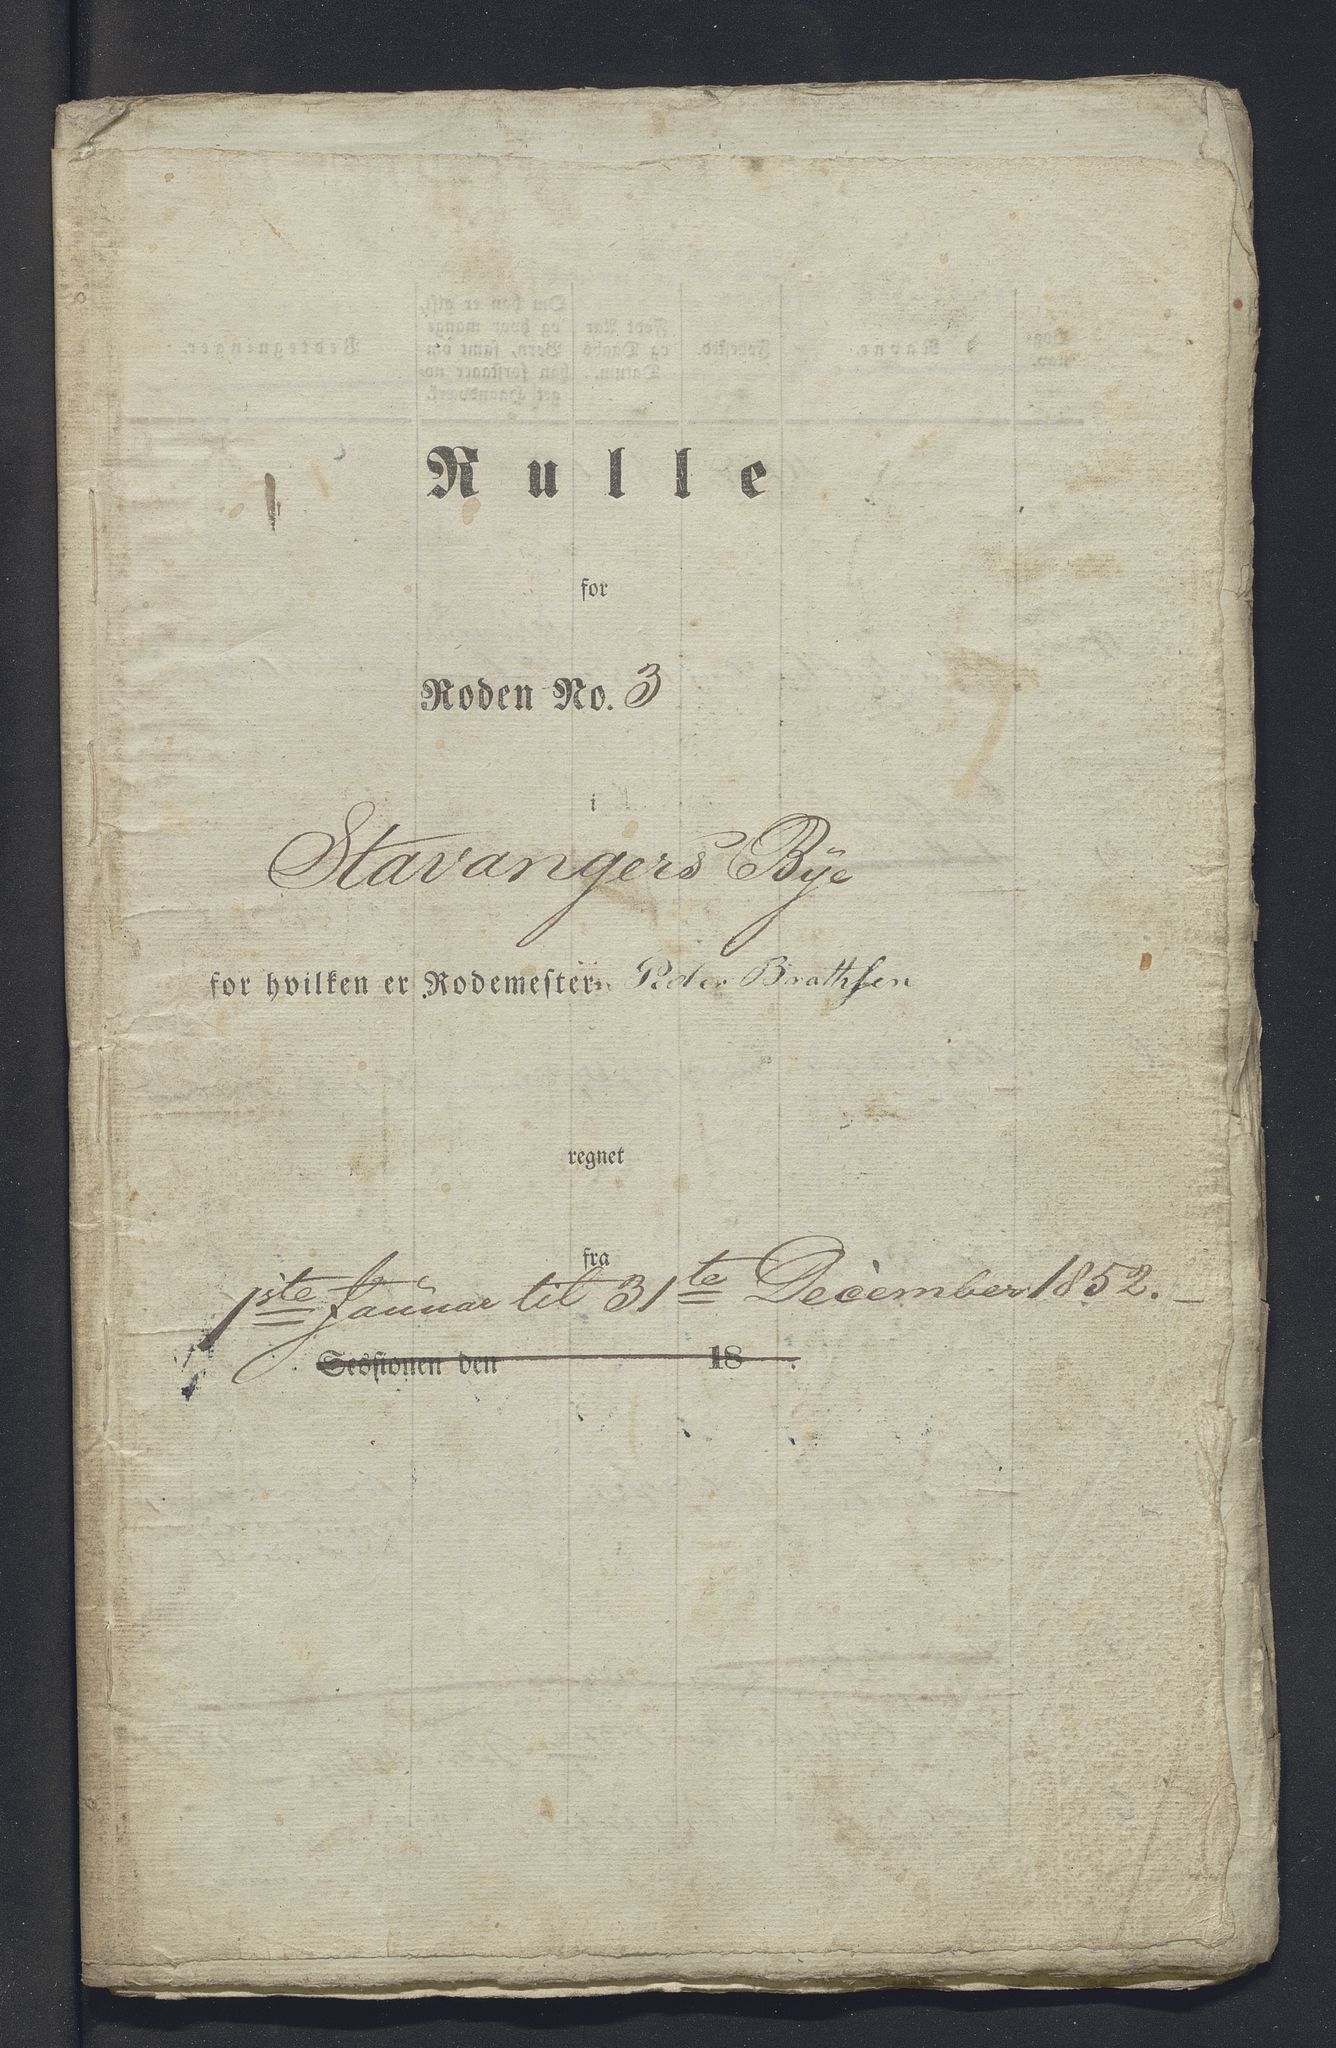 Rulle
for
Roden No. 3
i
Stavangers Bÿe
for hvilken er Rodemester Peder Brathsen
regnet
fra
1ste Januar til 31te December 1852.
Sessionen den 18 .